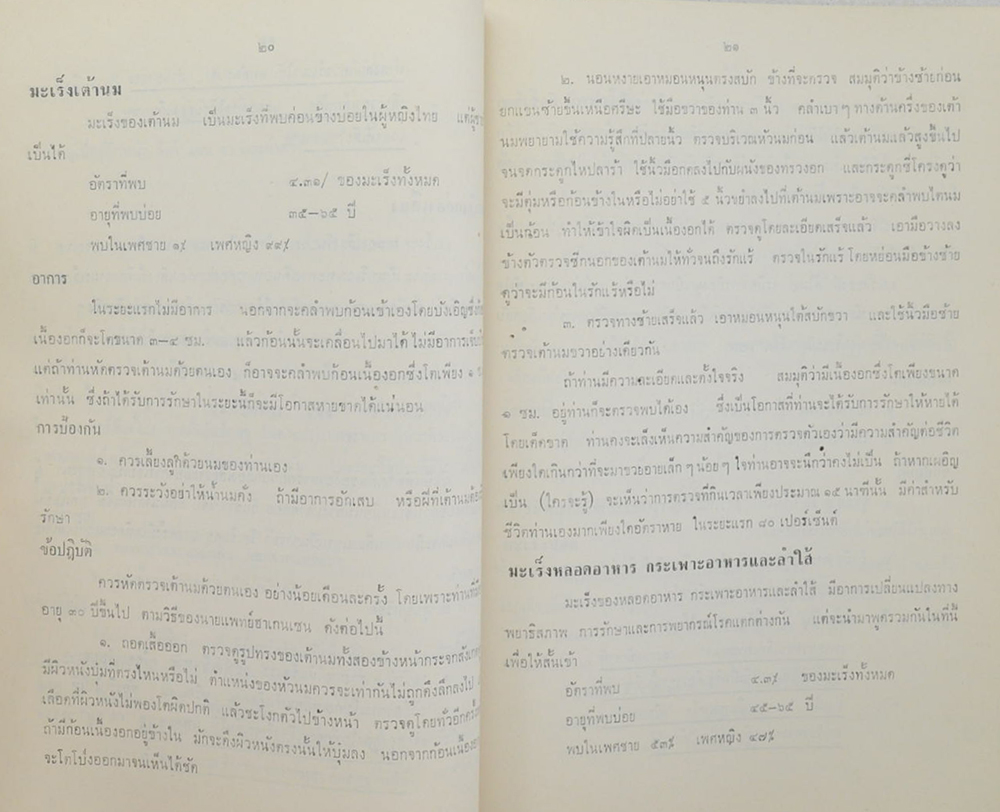 ๒๐
มะเร็งเต้านม
มะเร็งของเต้านม เป็นมะเร็งที่พบค่อนข้างบ่อยในผู้หญิงไทย แต่ผู้ชาย
เป็นได้
อัตราที่พบ ๔.๓๑/ ของมะเร็งทั้งหมด
อายุที่พบบ่อย ๓๕–๖๕ ปี
พบในเพศชาย ๑% เพศหญิง ๙๙%
อาการ
ในระยะแรกไม่มีอาการ นอกจากจะคลำพบก้อนเข้าเองโดยบังเอิญซึ่ง
เนื้องอกก็จะโตขนาด ๓–๔ ซม. แล้วก้อนนั้นจะเคลื่อนไปมาได้ ไม่มีอาการเจ็บ
แต่ถ้าท่านหัดตรวจเต้านมด้วยตนเอง ก็อาจจะคลำพบก้อนเนื้องอกซึ่งโตเพียง ๑
เท่านั้น ซึ่งถ้าได้รับการรักษาในระยะนี้ก็จะมีโอกาสหายขาดได้แน่นอน
การป้องกัน
๑. ควรเลี้ยงลูกด้วยนมของท่านเอง
๒. ควรระวังอย่าให้น้ำนมคั่ง ถ้ามีอาการอักเสบ หรือฝีที่เต้านม
รักษา
ข้อปฏิบัติ
ควรหัดตรวจเต้านมด้วยตนเอง อย่างน้อยเดือนละครั้ง โดยเพราะท่านที่
อายุ ๓๐ ปีขึ้นไป ตามวิธีของนายแพทย์ฮาเกนเซน ดังต่อไปนี้
๑. ถอดเสื้อออก ตรวจดูรูปทรงของเต้านมทั้งสองข้างหน้ากระจก
มีผิวหนังบุ๋มที่ตรงไหนหรือไม่ ตำแหน่งของหัวนมควรจะเท่ากันไม่ถูกดึงลึกลงไป
เลือดที่ผิวหนังไม่พองโตผิดปกติ แล้วชะโงกตัวไปข้างหน้า ตรวจดูโดยทั่วอีก
ถ้ามีก้อนเนื้องอกอยู่ข้างใน มักจะดึงผิวหนังตรงนั้นให้บุ๋มลง นอกจากก้อนเนื้อ
จะโตโป่งออกมาจนเห็นได้ชัด
๒๑
๒. นอนหงายเอาหมอนหนุนตรงสบัก ข้างที่จะตรวจ สมมุติว่าข้างซ้ายก่อน
ยกแขนซ้ายขึ้นเหนือศรีษะ ใช้มือขวาของท่าน ๓ นิ้ว คลำเบา ๆ ทางด้านครึ่งของเต้า
นมพยายามใช้ความรู้สึกที่ปลายนิ้ว ตรวจบริเวณหัวนมก่อน แล้วเต้านมแล้วสูงขึ้นไป
จนจดกระดูกไหปลาร้า ใช้นิ้วมือกดลงไปกับผนังของทรวงอก และกระดูกซี่โครงดูว่า
จะมีตุ่มหรือก้อนข้างในหรือไม่อย่าใช้ ๕ นิ้วขยำลงไปที่เต้านมเพราะอาจจะคลำพบไตนม
เป็นฉ้อน ทำให้เข้าใจผิดเป็นเนื้องอกได้ ตรวจดูโดยละเอียดเสร็จแล้ว เอามือวางลง
ข้างตัวตรวจซีกนอกของเต้านมให้ทั่วจนถึงรักแร้ ตรวจในรักแร้ โดยหย่อนมือข้างซ้าย
ดูว่าจะมีก้อนในรักแร้หรือไม่
๓. ตรวจทางซ้ายเสร็จแล้ว เอาหมอนหนุนใต้สบักขวา และใช้นิ้วมือซ้าย
ตรวจเต้านมขวาอย่างเดียวกัน
ถ้าท่านมีความละเอียดและตั้งใจจริง สมมุติว่ามีเนื้องอกซึ่งโตเพียงขนาด
๑ ซม. อยู่ท่านก็จะตรวจพบได้เอง ซึ่งเป็นโอกาสที่ท่านจะได้รับการรักษาให้หายได้
โดยเด็ดขาด ท่านคงจะเล็งเห็นความสำคัญของการตรวจตัวเองว่ามีความสำคัญต่อชีวิต
เพียงใดเกินกว่าที่จะมาขวยอายเล็ก ๆ น้อย ๆ ใจท่านอาจจะนึกว่าคงไม่เป็น ถ้าหากเผอิญ
เป็น (ใครจะรู้) จะเห็นว่าการตรวจที่กินเวลาเพียงประมาณ ๑๕ นาทีนั้น มีค่าสำหรับ
ชีวิตท่านเองมากเพียงใดอัตราหาย ในระยะแรก ๘๐ เปอร์เซ็นต์
มะเร็งหลอดอาหาร กระเพาะอาหารและลำใส้
มะเร็งของหลอดอาหาร กระเพาะอาหารและลำใส้ มีอาการเปลี่ยนแปลงทาง
พยาธิสภาพ การรักษาและการพยากรณ์โรคแตกต่างกัน แต่จะนำมาพูดรวมกันในที่นี้
เพื่อให้สั้นเข้า
อัตราที่พบ ๔.๓% ของมะเร็งทั้งหมด
อายุที่พบบ่อย ๔๕–๖๕ ปี
พบในเพศชาย ๕๓% เพศหญิง ๔๗%